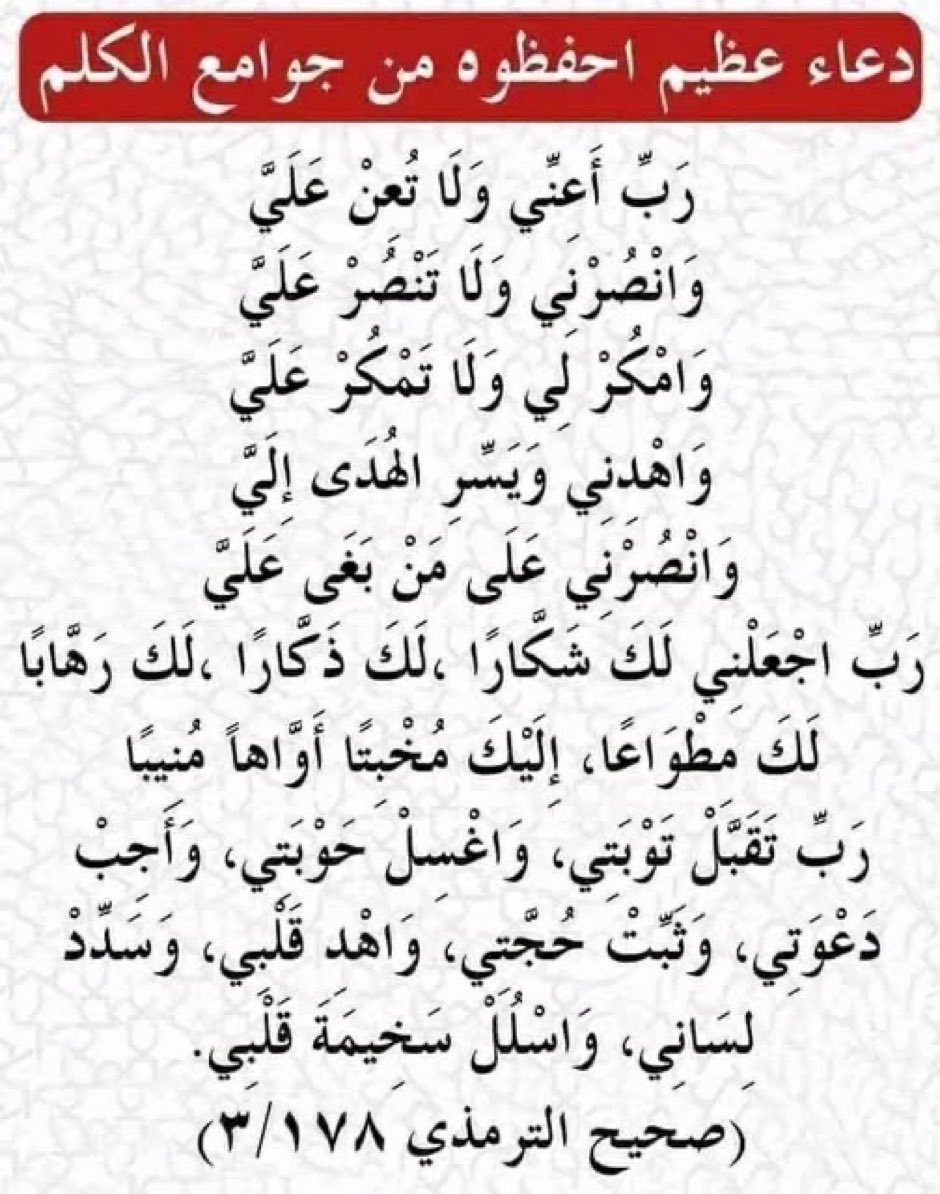 دعاء عظيم احفظوه من جوامع الكلم
رَبِّ أَعِنِّي وَلَا تُعِنْ عَلَيَّ
وَانْصُرْنِي وَلَا تَنْصُرْ عَلَيَّ
وَامْكُرْ لِي وَلَا تَمْكُرْ عَلَيَّ
وَاهْدِنِي وَيَسِّرِ الهُدَى إِلَيَّ
وَانْصُرْنِي عَلَى مَنْ بَغَى عَلَيَّ
رَبِّ اجْعَلْنِي لَكَ شَكَّارًا ،لَكَ ذَكَّارًا ،لَكَ رَهَّابًا
لَكَ مِطْوَاعًا، إِلَيْكَ مُخْبِتًا أَوَّاهاً مُنِيبًا
رَبِّ تَقَبَّلْ تَوْبَتِي، وَاغْسِلْ حَوْبَتِي، وَأَجِبْ
دَعْوَتِي، وَثَبِّتْ حُجَّتِي، وَاهْدِ قَلْبِي، وَسَدِّدْ
لِسَانِي، وَاسْلُلْ سَخِيمَةَ قَلْبِي.
(صحيح الترمذي ٣/١٧٨)